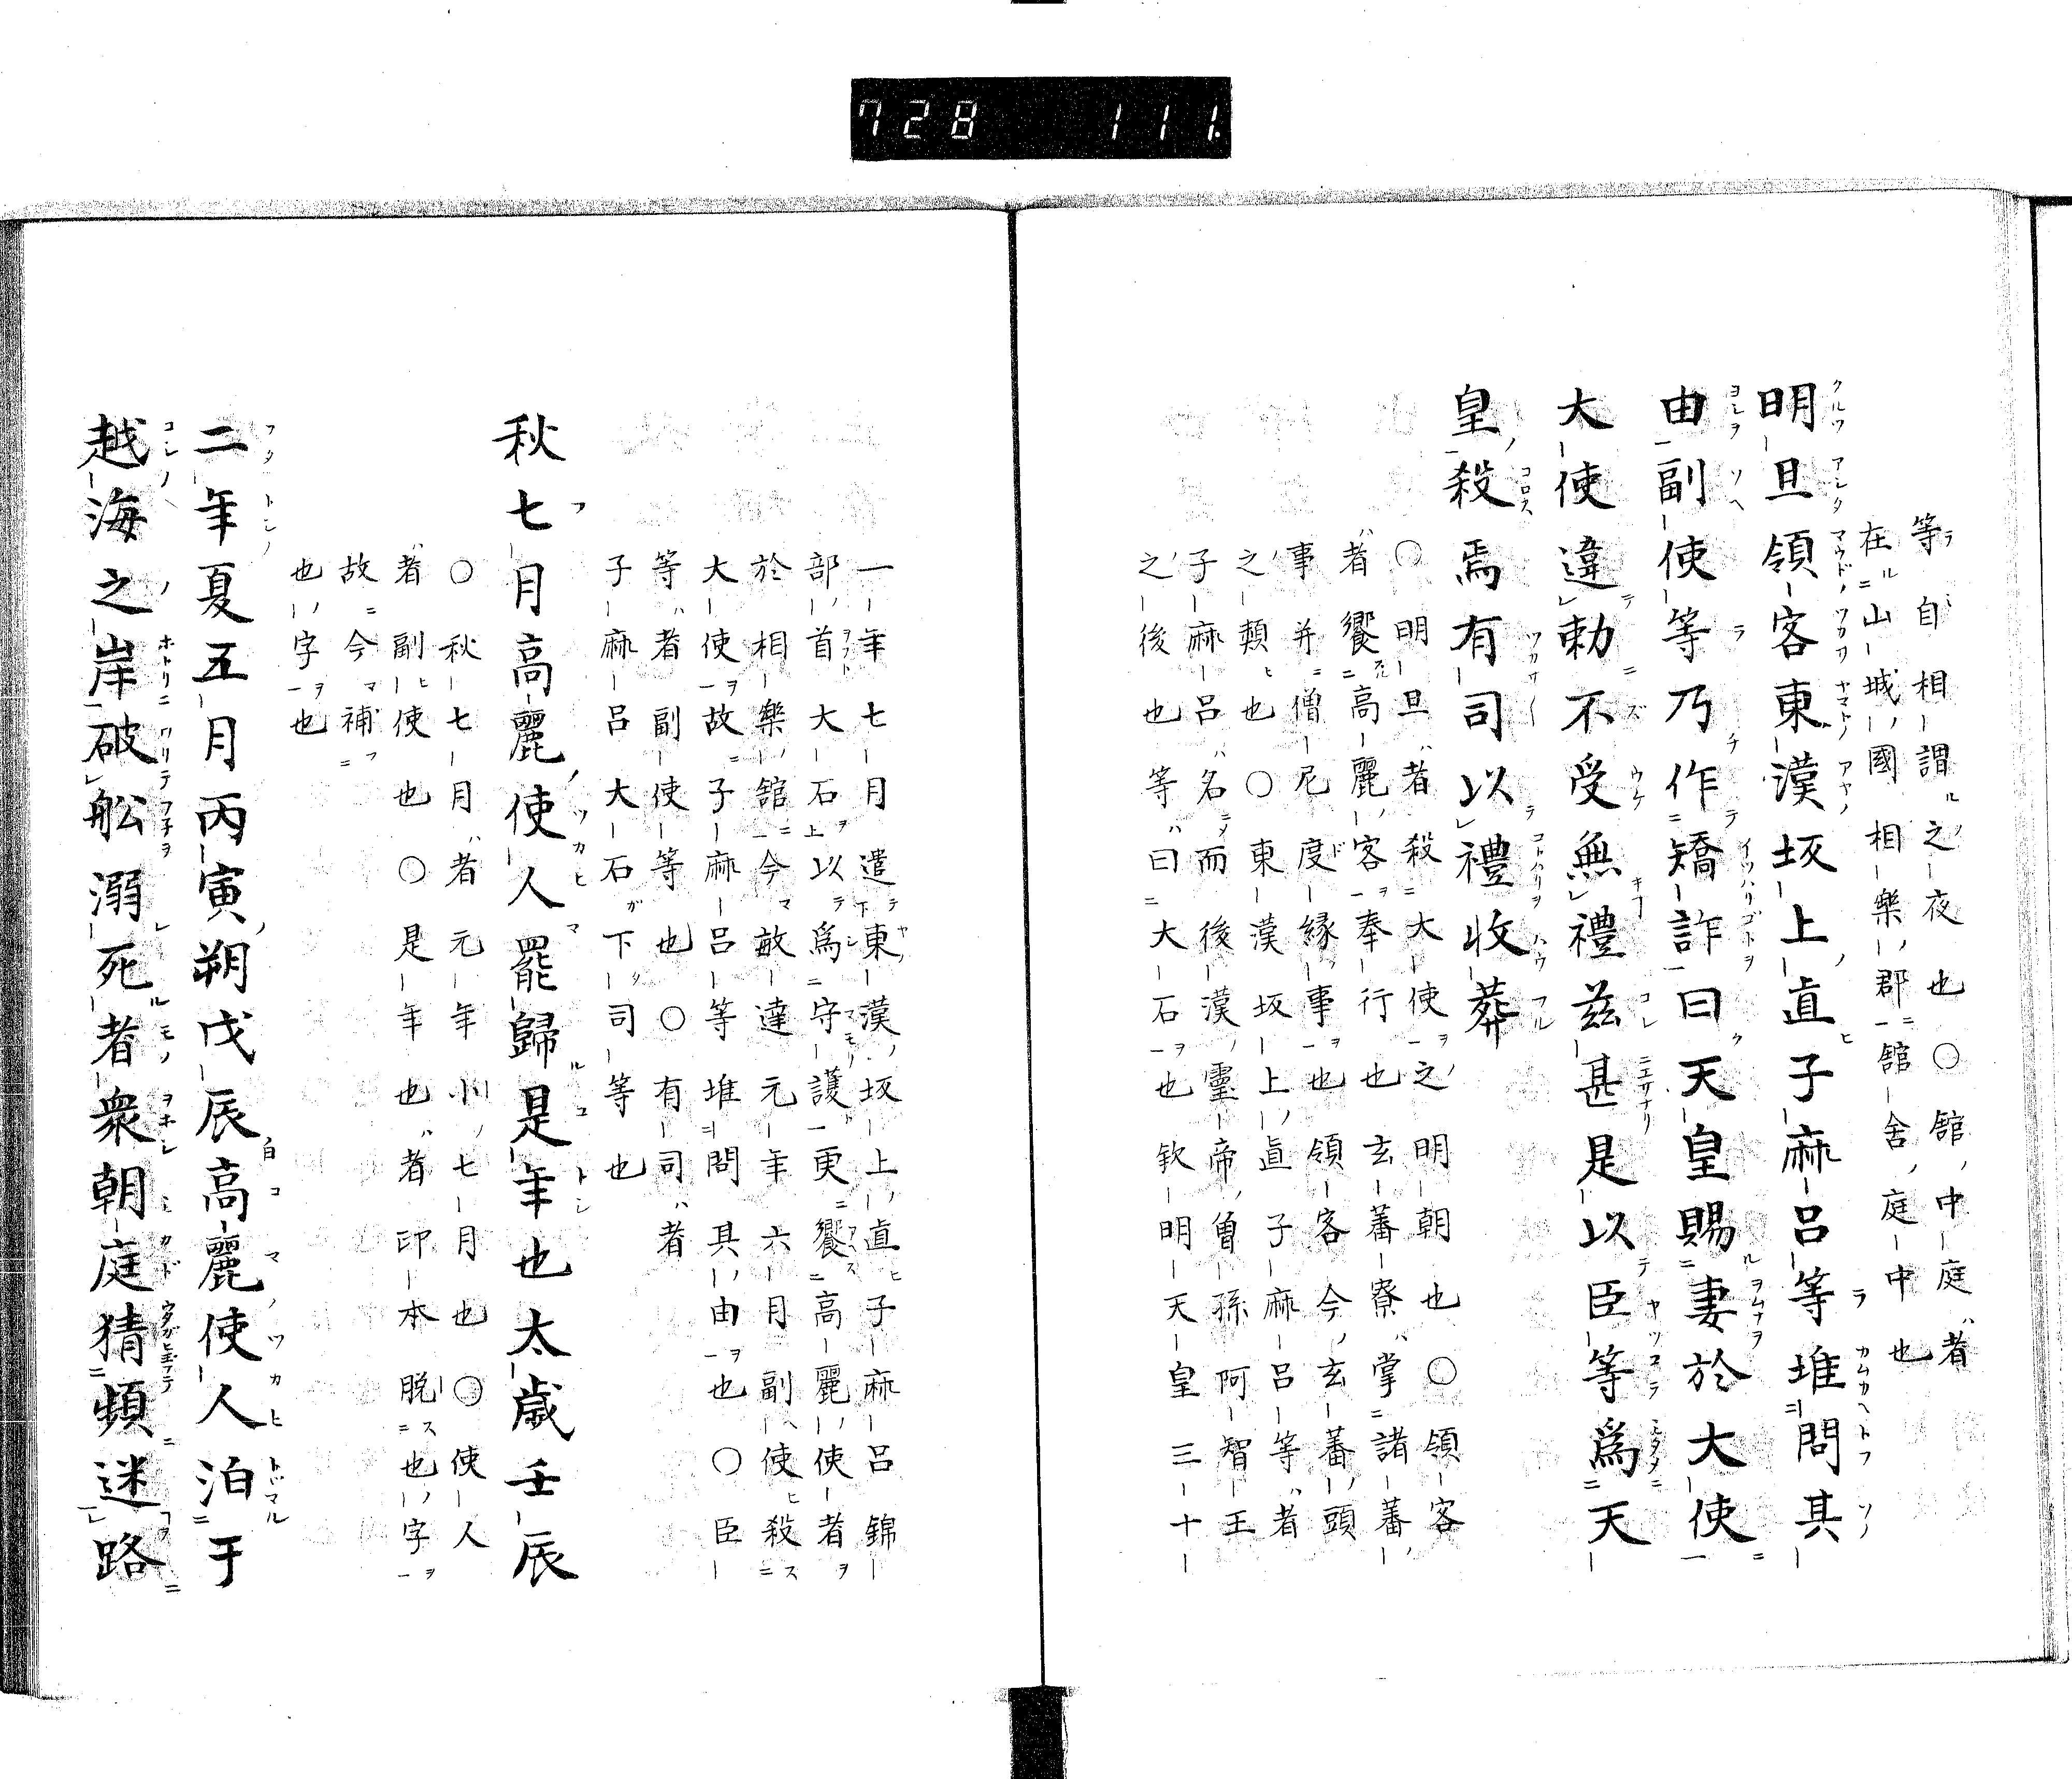 728 111.
等自相謂之夜也○舘中庭者
在山城國相樂郡舘舎庭中也
明旦領客東漢坂上直子麻呂等堆問其
由副使等乃作矯詐曰天皇賜妻於大使
大使違勅不受無禮茲甚是以臣等爲天
皇殺焉有司以禮收葬
○明旦者殺大使之明朝也○領客
者饗高麗客奉行也玄蕃寮掌諸蕃
事并僧尼度縁事也領客今玄蕃頭
之類也○東漢坂上直子麻呂等者
子麻呂名而後漢靈帝曾孫阿智王
之後也等曰大石也欽明天皇三十
一年七月遣東漢坂上直子麻呂錦
部首大石以爲守護更饗高麗使者
於相樂舘今敏達元年六月副使殺
大使故子麻呂等堆問其由也○臣
等者副使等也○有司者
子麻呂大石下司等也
秋七月高麗使人罷歸是年也太歳壬辰
○秋七月者元年小七月也○使人
者副使也○是年也者印本脱也字
故今補
也字也
二年夏五月丙寅朔戊辰高麗使人泊于
越海之岸破舩溺死者衆朝庭猜頻迷路